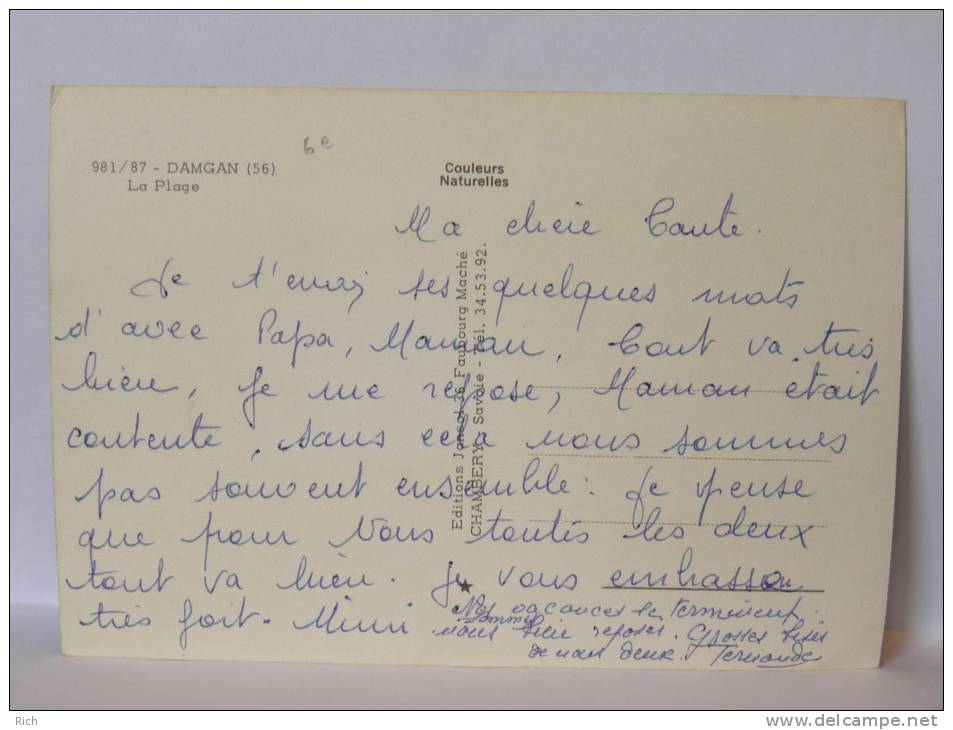 6€
981/87 - DAMGAN (56)
La Plage
Couleurs
Naturelles
Editions Jansol 36 Faubourg Maché
CHAMBERY - Savoie - Tél. 34.53.92.
Ma chère Tante.
Je t'envoi ses quelques mots
d'avec Papa, Maman, Tout va très
bien, je me repose, Maman était
contente, sans cela nous sommes
pas souvent ensemble : Je pense
que pour Vous toutes les deux
tout va bien. Je vous embrasse
très fort. Mimi
Nos vacances se terminent.
sommes
nous bien reposés. Grosses bises
de nous deux. Fernande
Rich
www.delcampe.net